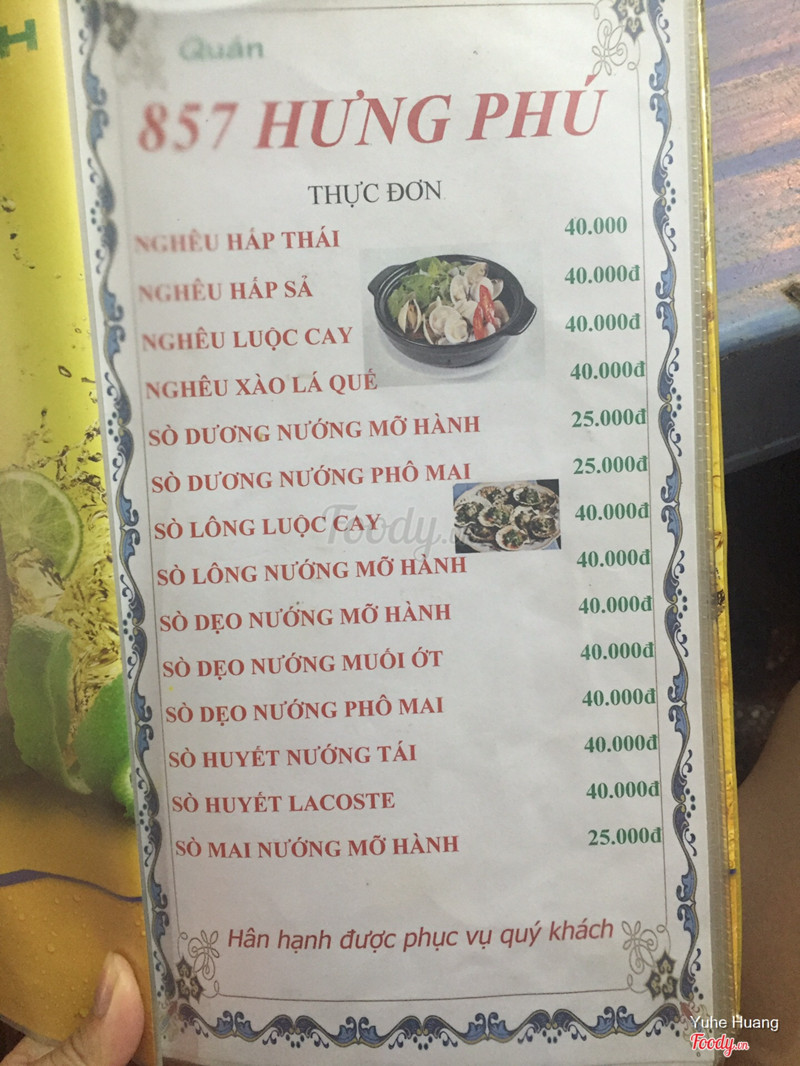 Quán
857 HƯNG PHÚ
THỰC ĐƠN
NGHÊU HẤP THÁI 40.000
NGHÊU HẤP SẢ 40.000đ
NGHÊU LUỘC CAY 40.000đ
NGHÊU XÀO LÁ QUẾ 40.000đ
SÒ DƯƠNG NƯỚNG MỠ HÀNH 25.000đ
SÒ DƯƠNG NƯỚNG PHÔ MAI 25.000đ
SÒ LÔNG LUỘC CAY 40.000đ
SÒ LÔNG NƯỚNG MỠ HÀNH 40.000đ
SÒ DẸO NƯỚNG MỠ HÀNH 40.000đ
SÒ DẸO NƯỚNG MUỐI ỚT 40.000đ
SÒ DẸO NƯỚNG PHÔ MAI 40.000đ
SÒ HUYẾT NƯỚNG TÁI 40.000đ
SÒ HUYẾT LACOSTE 40.000đ
SÒ MAI NƯỚNG MỠ HÀNH 25.000đ
Hân hạnh được phục vụ quý khách
Foody.vn
Yuhe Huang
Foody.vn